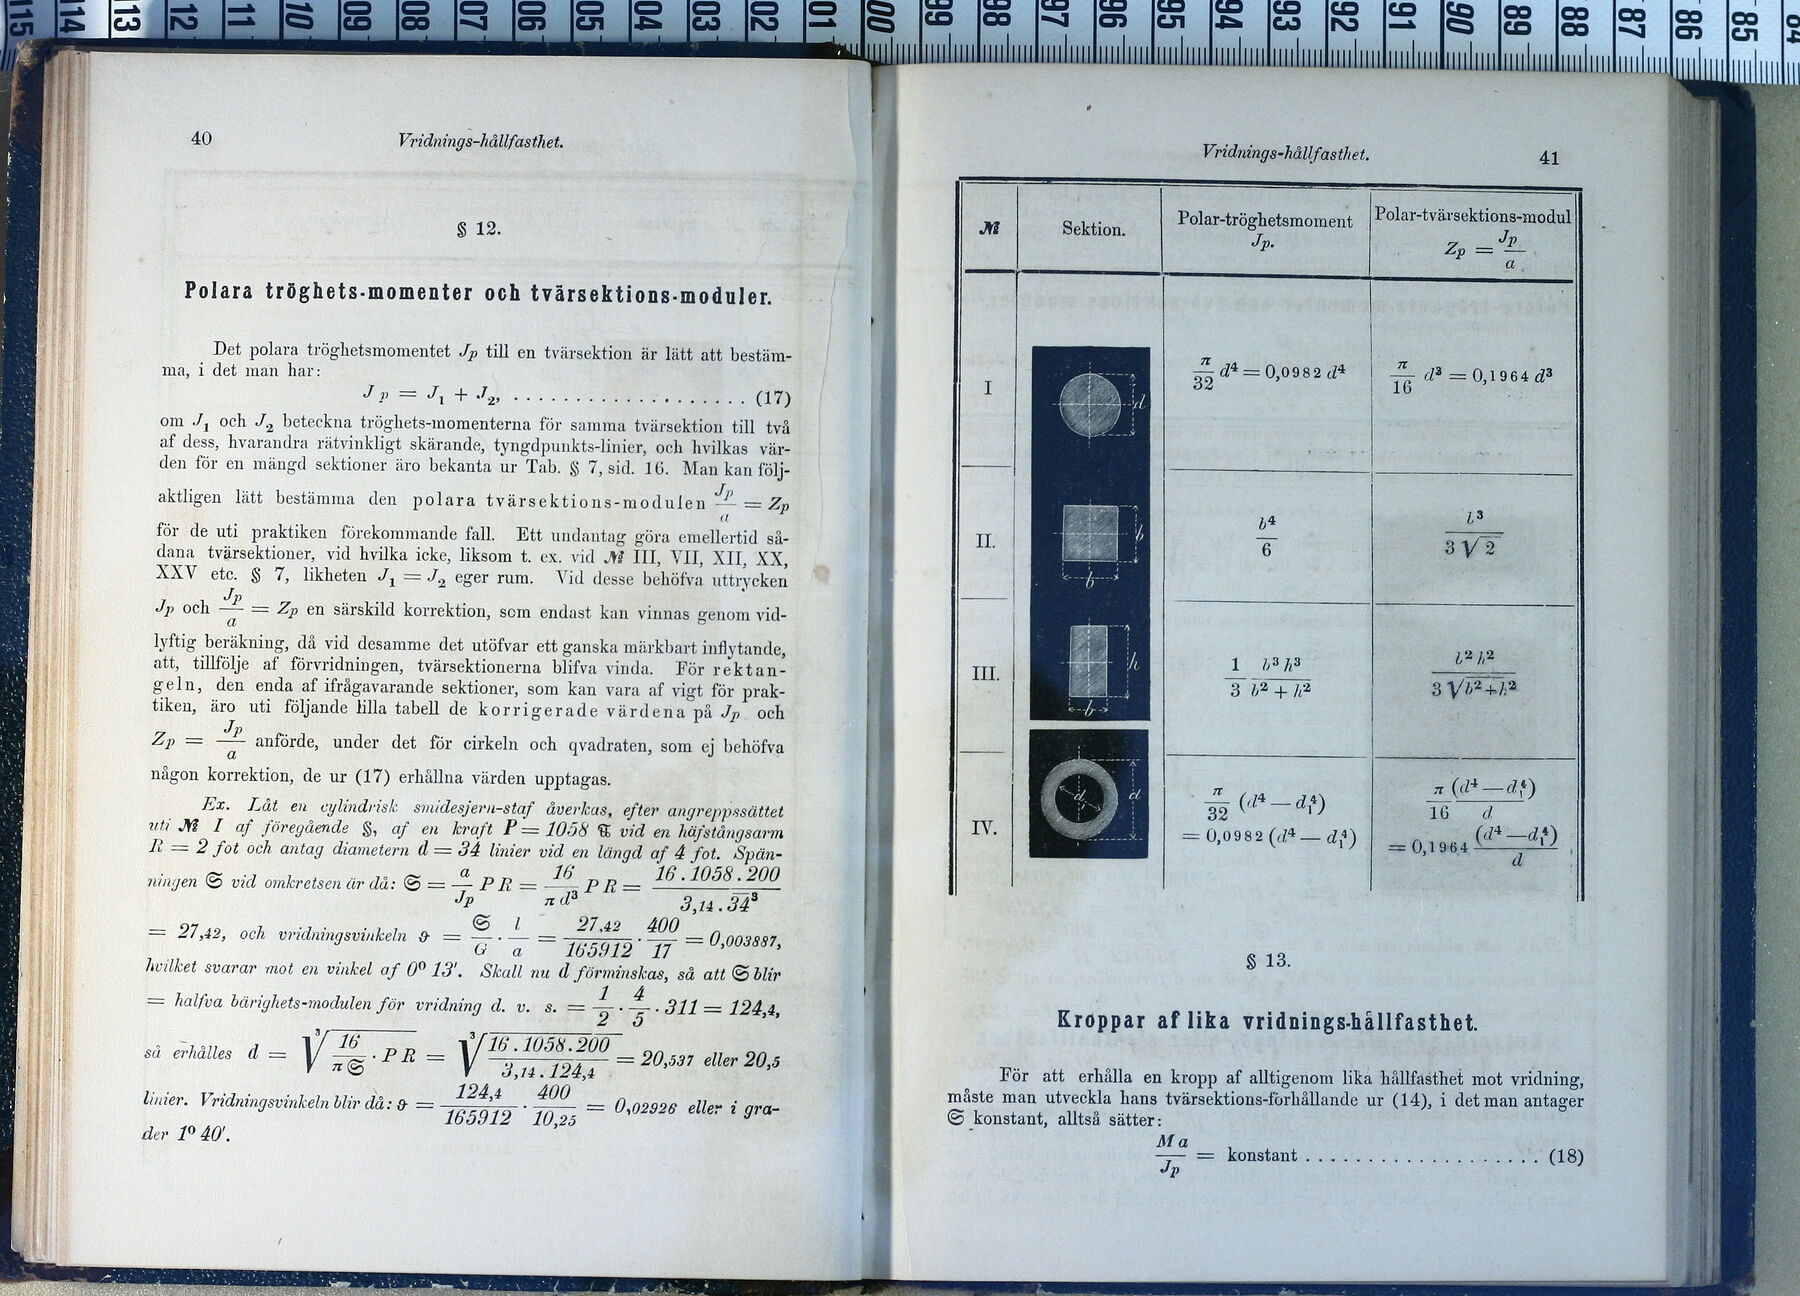 115 114 113 112 111 110 109 108 107 106 105 104 103 102 101 100 99 98 97 96 95 94 93 92 91 90 89 88 87 86 85 84
40
Vridnings-hållfasthet.
§ 12.
Polara tröghets-momenter och tvärsektions-moduler.
Det polara tröghetsmomentet Jp till en tvärsektion är lätt att bestäm-
ma, i det man har:
Jp = J₁ + J₂, . . . . . . . . . . . . . . . . . . . (17)
om J₁ och J₂ beteckna tröghets-momenterna för samma tvärsektion till två
af dess, hvarandra rätvinkligt skärande, tyngdpunkts-linier, och hvilkas vär-
den för en mängd sektioner äro bekanta ur Tab. § 7, sid. 16. Man kan följ-
aktligen lätt bestämma den polara tvärsektions-modulen Jp/a = Zp
för de uti praktiken förekommande fall. Ett undantag göra emellertid så-
dana tvärsektioner, vid hvilka icke, liksom t. ex. vid № III, VII, XII, XX,
XXV etc. § 7, likheten J₁ = J₂ eger rum. Vid desse behöfva uttrycken
Jp och Jp/a = Zp en särskild korrektion, som endast kan vinnas genom vid-
lyftig beräkning, då vid desamme det utöfvar ett ganska märkbart inflytande,
att, tillfölje af förvridningen, tvärsektionerna blifva vinda. För rektan-
geln, den enda af ifrågavarande sektioner, som kan vara af vigt för prak-
tiken, äro uti följande lilla tabell de korrigerade värdena på Jp och
Zp = Jp/a anförde, under det för cirkeln och qvadraten, som ej behöfva
någon korrektion, de ur (17) erhållna värden upptagas.
Ex. Låt en cylindrisk smidesjern-staf åverkas, efter angreppssättet
uti № I af föregående §, af en kraft P = 1058 ℔ vid en häfstångsarm
R = 2 fot och antag diametern d = 34 linier vid en längd af 4 fot. Spän-
ningen 𝔖 vid omkretsen är då: 𝔖 = a/Jp PR = 16/πd³ PR = 16.1058.200/3,14.34³
= 27,42, och vridningsvinkeln ϑ = 𝔖/G · l/a = 27,42/165912 · 400/17 = 0,003887,
hvilket svarar mot en vinkel af 0° 13'. Skall nu d förminskas, så att 𝔖 blir
= halfva bärighets-modulen för vridning d. v. s. = 1/2 · 4/5 · 311 = 124,4,
så erhålles d = ³√(16/π𝔖 · PR) = ³√(16.1058.200/3,14.124,4) = 20,537 eller 20,5
linier. Vridningsvinkeln blir då: ϑ = 124,4/165912 · 400/10,25 = 0,02926 eller i gra-
der 1° 40'.
Vridnings-hållfasthet.
41
№ Sektion. Polar-tröghetsmoment Jp. Polar-tvärsektions-modul Zp = Jp/a
I d π/32 d⁴ = 0,0982 d⁴ π/16 d³ = 0,1964 d³
II. b b b⁴/6 b³/3√2
III. h b 1/3 b³h³/b² + h² b²h²/3√b²+h²
IV. d₁ d π/32 (d⁴ — d₁⁴) π/16 (d⁴ — d₁⁴)/d
= 0,0982 (d⁴ — d₁⁴) = 0,1964 (d⁴ — d₁⁴)/d
§ 13.
Kroppar af lika vridnings-hållfasthet.
För att erhålla en kropp af alltigenom lika hållfasthet mot vridning,
måste man utveckla hans tvärsektions-förhållande ur (14), i det man antager
𝔖 konstant, alltså sätter:
Ma/Jp = konstant . . . . . . . . . . . . . . . . . . . (18)